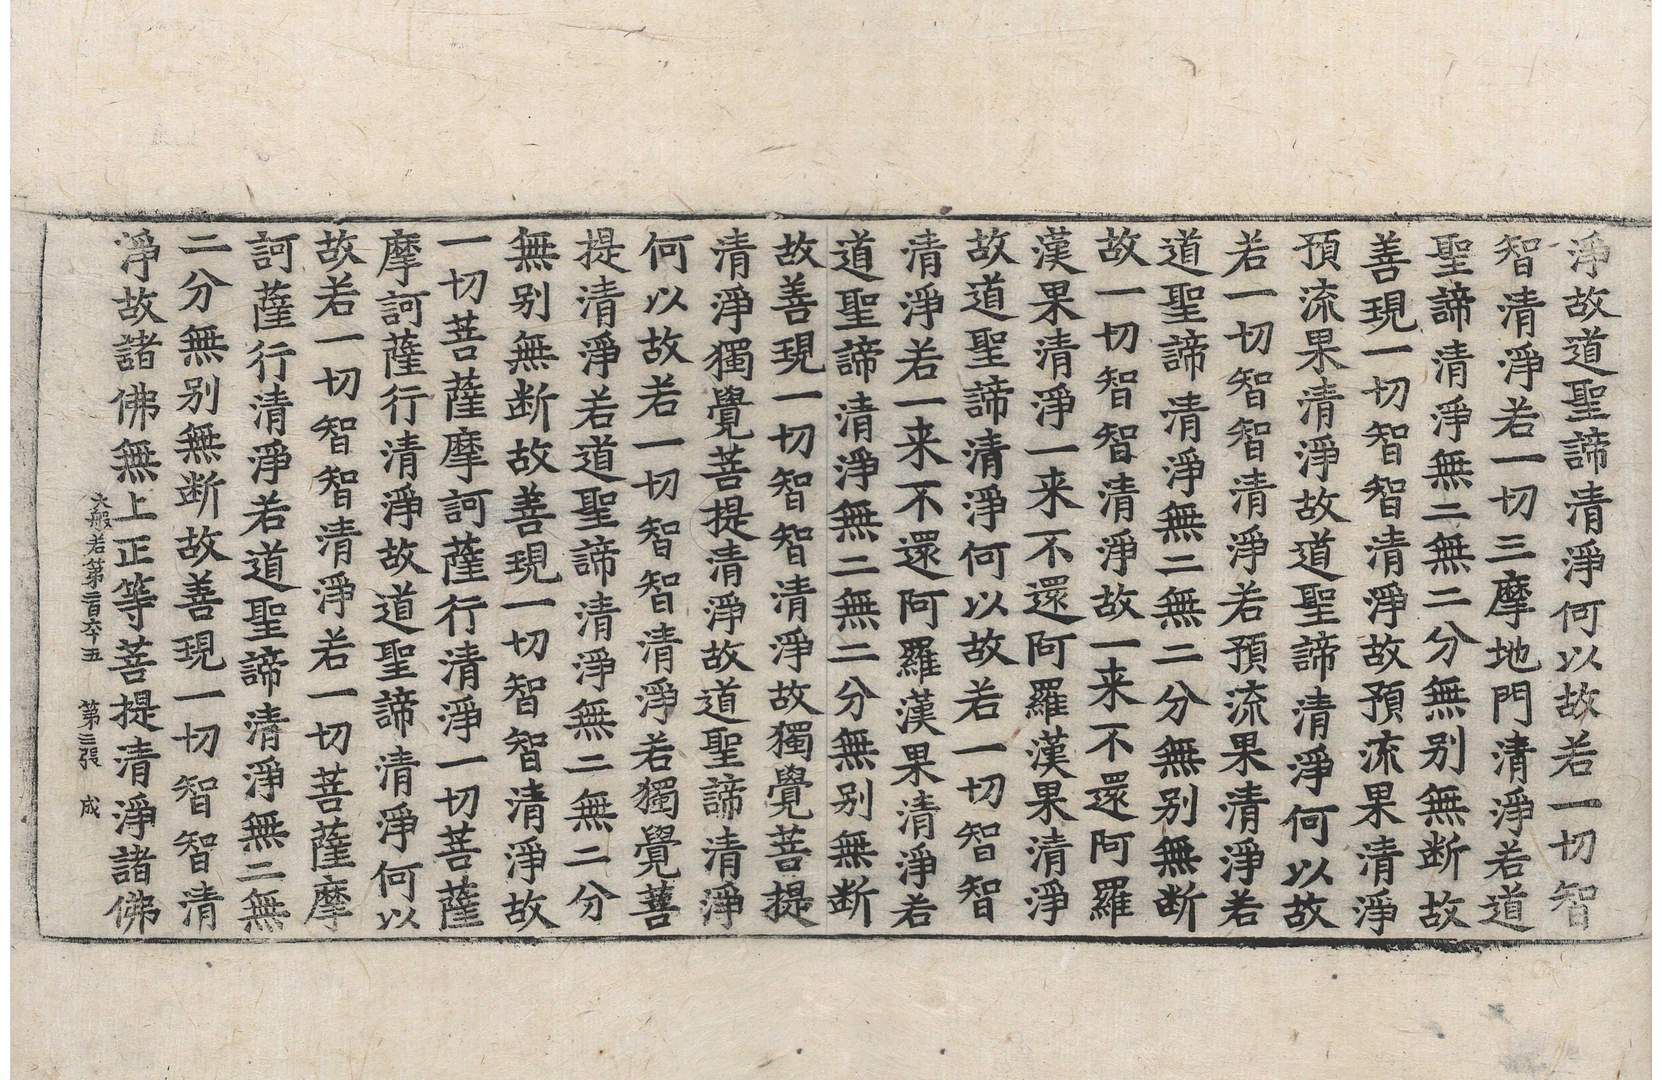 淨故道聖諦清淨何以故若一切智
智清淨若一切三摩地門清淨若道
聖諦清淨無二無二分無别無断故
善現一切智智清淨故預流果清淨
預流果清淨故道聖諦清淨何以故
若一切智智清淨若預流果清淨若
道聖諦清淨無二無二分無别無断
故一切智智清淨故一来不還阿羅
漢果清淨一来不還阿羅漢果清淨
故道聖諦清淨何以故若一切智智
清淨若一来不還阿羅漢果清淨若
道聖諦清淨無二無二分無别無断
故善現一切智智清淨故獨覺菩提
清淨獨覺菩提清淨故道聖諦清淨
何以故若一切智智清淨若獨覺菩
提清淨若道聖諦清淨無二無二分
無别無断故善現一切智智清淨故
一切菩薩摩訶薩行清淨一切菩薩
摩訶薩行清淨故道聖諦清淨何以
故若一切智智清淨若一切菩薩摩
訶薩行清淨若道聖諦清淨無二無
二分無别無断故善現一切智智清
淨故諸佛無上正等菩提清淨諸佛
大般若第二百六十五 第三張 成